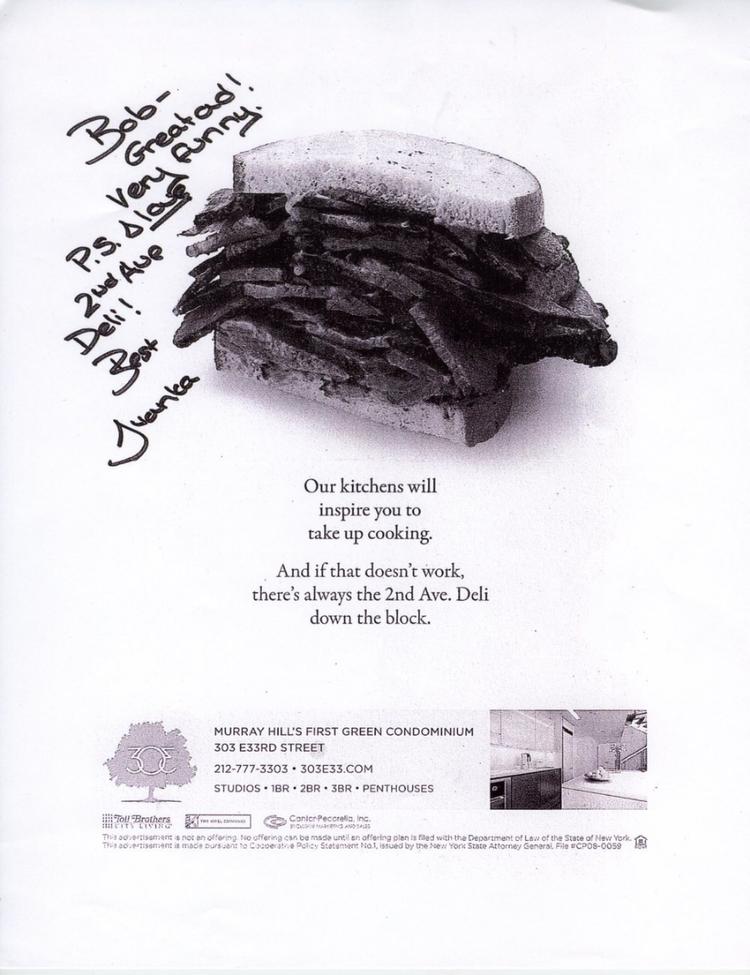 Bob-
Great ad!
Very funny.
P.S. I love
2nd Ave
Deli!
Best
Ivanka
Our kitchens will
inspire you to
take up cooking.
And if that doesn't work,
there's always the 2nd Ave. Deli
down the block.
30E
MURRAY HILL'S FIRST GREEN CONDOMINIUM
303 E33RD STREET
212-777-3303 • 303E33.COM
STUDIOS • 1BR • 2BR • 3BR • PENTHOUSES
Toll Brothers
CITY LIVING
Cantor-Pecorella, Inc.
EXCLUSIVE MARKETING AND SALES
This advertisement is not an offering. No offering can be made until an offering plan is filed with the Department of Law of the State of New York.
This advertisement is made pursuant to Cooperative Policy Statement No.1, issued by the New York State Attorney General. File #CP08-0059